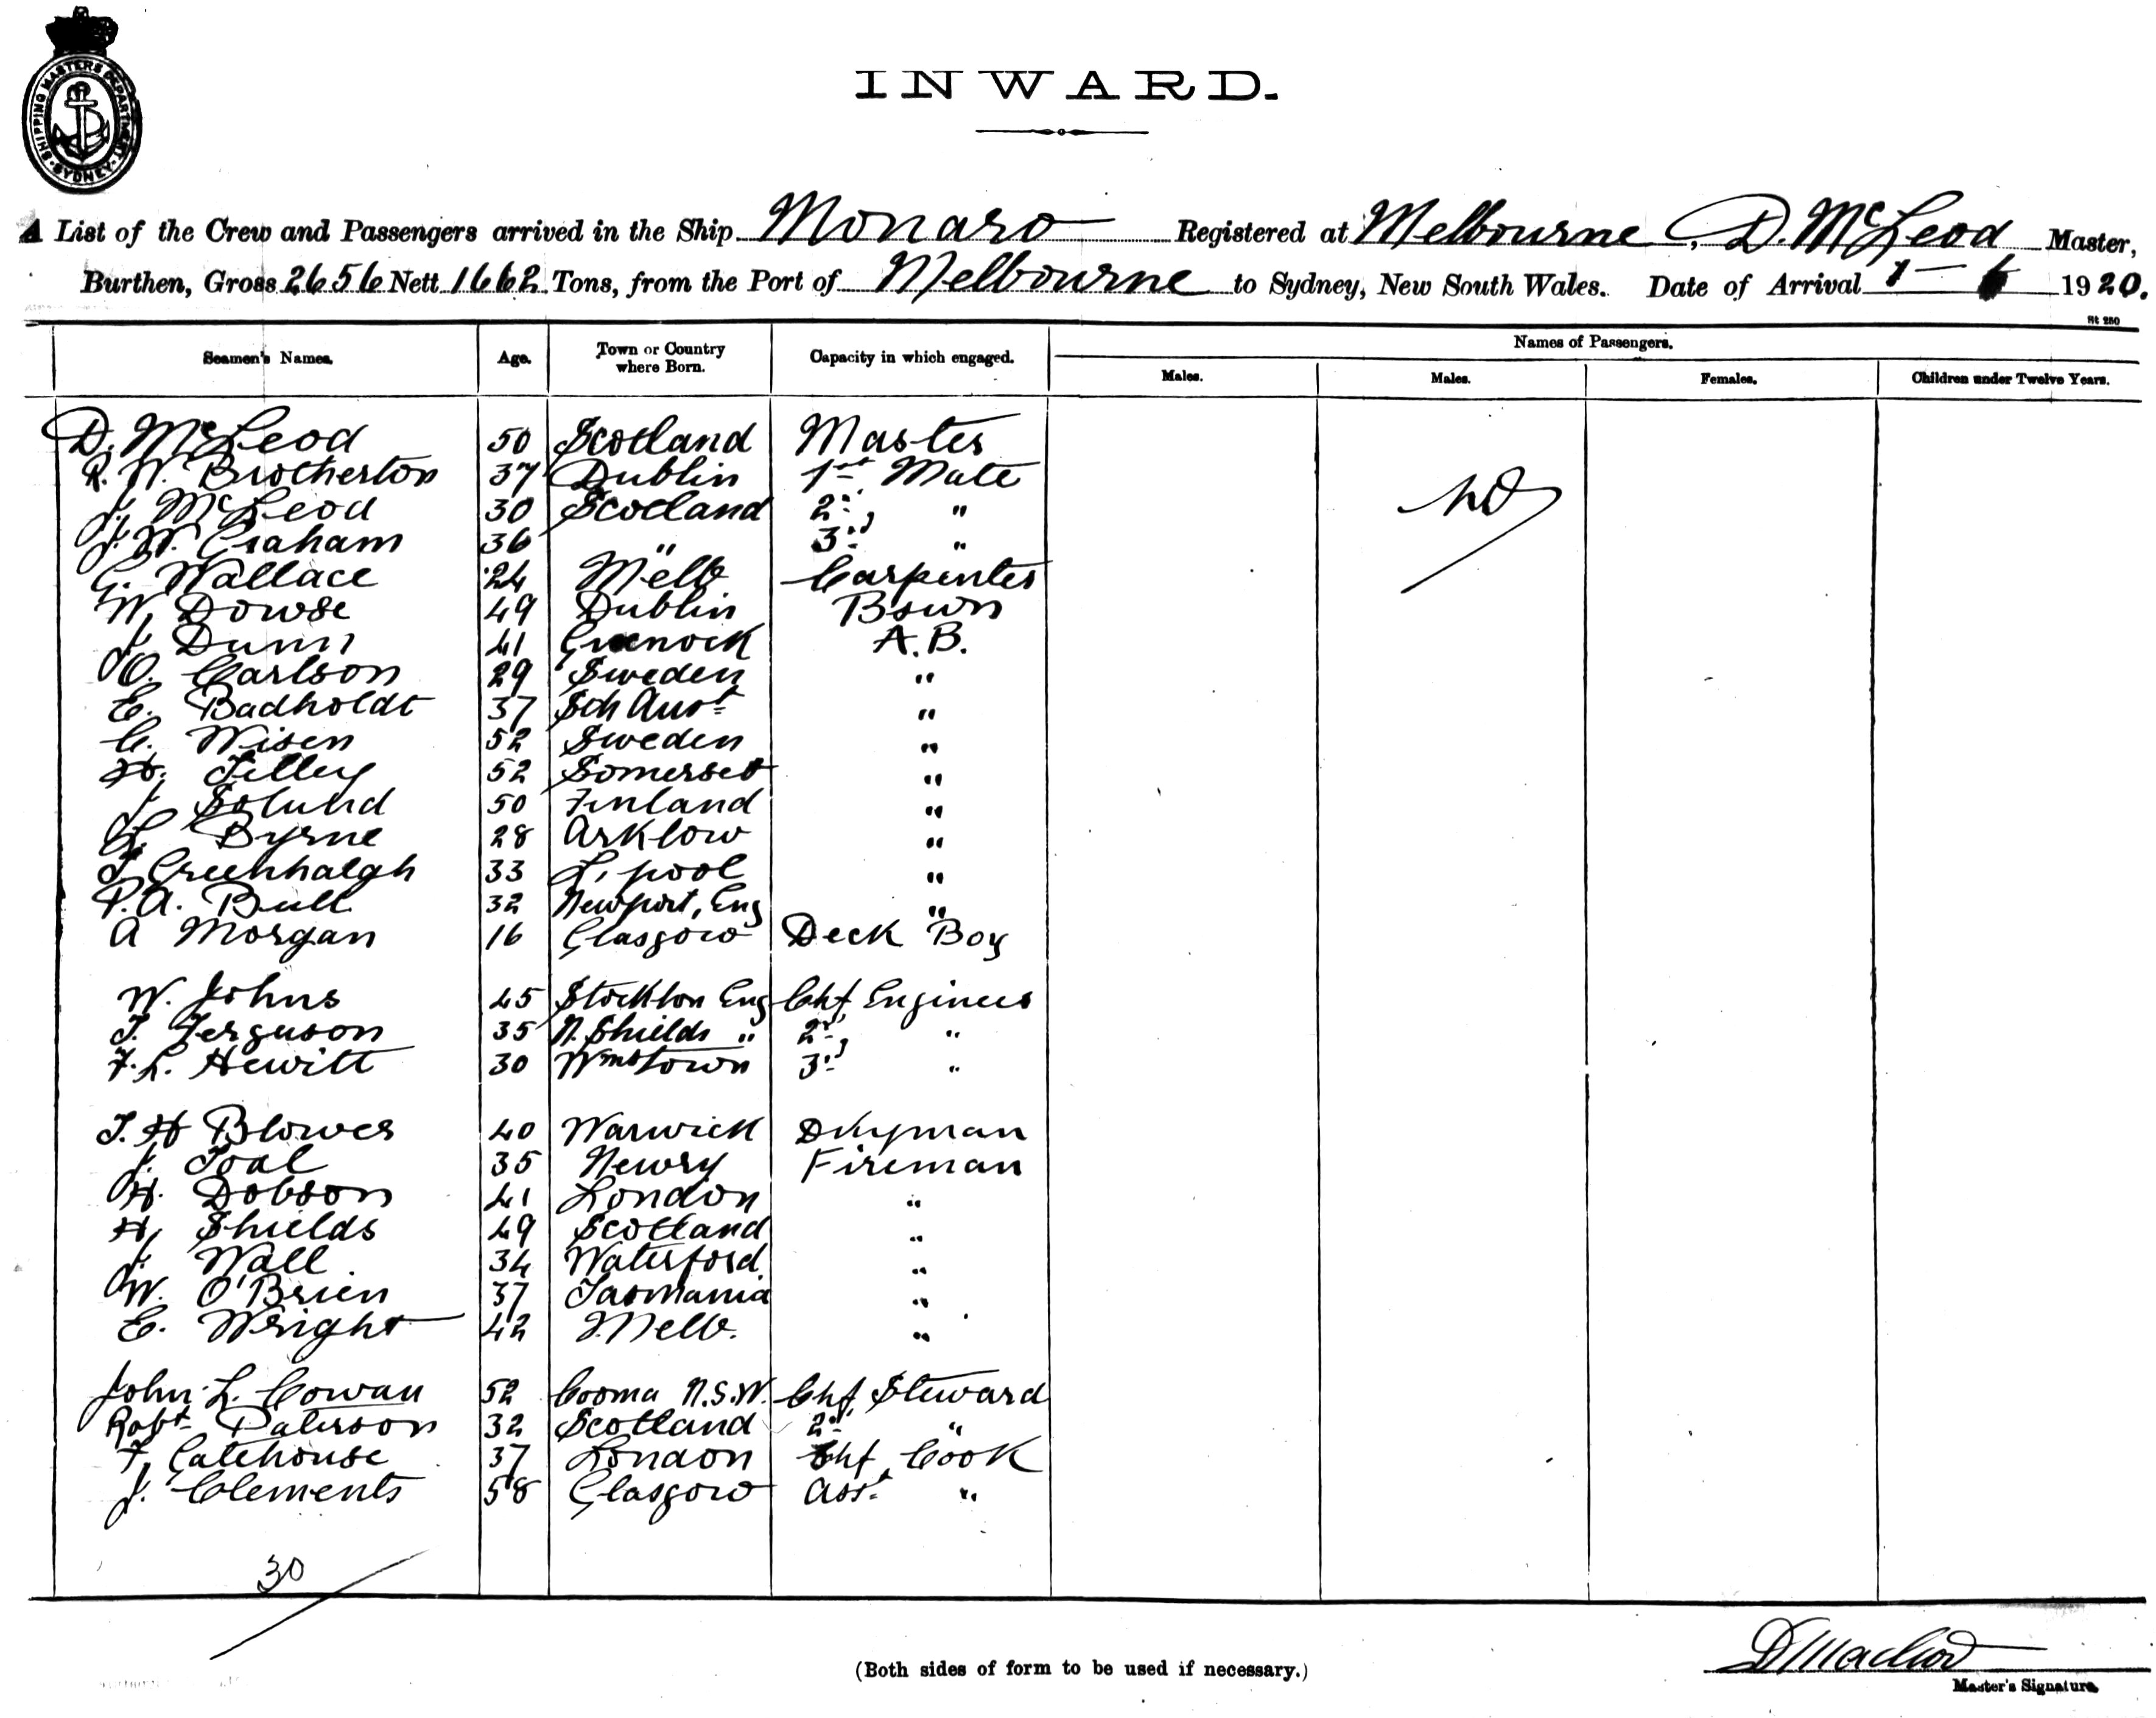 SHIPPING MASTERS DEPARTMENT SYDNEY
INWARD.
A List of the Crew and Passengers arrived in the Ship Monaro Registered at Melbourne, D. McLeod Master,
Burthen, Gross 2656 Nett 1662 Tons, from the Port of Melbourne to Sydney, New South Wales. Date of Arrival 1 — 1920.
St 280
Seamen's Names. Age. Town or Country where Born. Capacity in which engaged. Names of Passengers.
Males. Males. Females. Children under Twelve Years.
D. McLeod 50 Scotland Master
R. W. Brotherton 37 Dublin 1st Mate
J. McLeod 30 Scotland 2nd "
J. W. Graham 36 " 3rd "
G. Wallace 24 Melb Carpenter
W. Dowse 49 Dublin Bswn
J. Dunn 41 Greenock A.B.
O. Carlson 29 Sweden "
E. Badholdt 37 Sth Aust "
C. Wisen 52 Sweden "
H. Tilley 52 Somerset "
J. Solund 50 Finland "
Byrne 28 Arklow "
T. Greenhalgh 33 L'pool "
P.A. Bull 32 Newport, Eng "
A Morgan 16 Glasgow Deck Boy
W. Johns 45 Stockton Eng Chf Engineer
T. Ferguson 35 N. Shields " 2nd "
F. L. Hewitt 30 Wmstown 3rd "
T. H Blower 40 Warwick Dkyman
J. Toal 35 Newry Fireman
H. Dobson 41 London "
H. Shields 49 Scotland "
J. Wall 34 Waterford "
W. O'Brien 37 Tasmania "
E. Wright 42 Melb. "
John L. Cowan 52 Cooma N.S.W. Chf Steward
Robt Paterson 32 Scotland 2nd "
F. Gatehouse 37 London Chf Cook
J. Clements 58 Glasgow Asst "
30
(Both sides of form to be used if necessary.)
D Macleod
Master's Signature